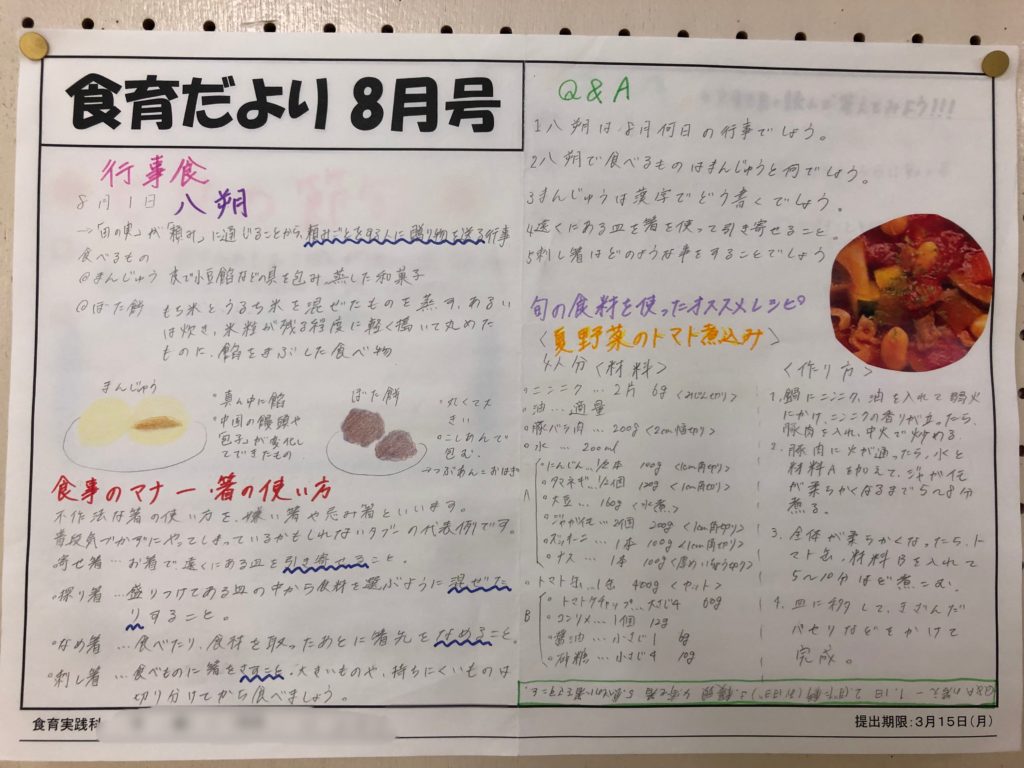 食育だより 8月号
行事食
8月1日 八朔
→「田の実」が「頼み」に通じることから、頼みごとをする人に贈り物を送る行事
食べるもの
◎まんじゅう 皮で小豆餡などの具を包み、蒸した和菓子
◎ぼた餅 もち米とうるち米を混ぜたものを蒸す、あるい
は炊き、米粒が残る程度に軽く搗いて丸めた
ものに、餡をまぶした食べ物
まんじゅう
・真ん中に餡
・中国の饅頭や
包子が変化し
てできたもの
ぼた餅
・丸くて大
きい
・こしあんで
包む
→つぶあん=おはぎ
食事のマナー・箸の使い方
不作法な箸の使い方を、嫌い箸や忌み箸といいます。
普段気づかずにやってしまっているかもしれないタブーの代表例です。
寄せ箸…お箸で遠くにある皿を引き寄せること。
・探り箸…盛りつけてある皿の中から食材を選ぶように混ぜた
りすること。
・なめ箸…食べたり、食材を取ったあとに箸先をなめること。
・刺し箸…食べものに箸をさすこと。大きいものや、持ちにくいものは
切り分けてから食べましょう。
食育実践科
Q&A
1八朔は8月何日の行事でしょう。
2八朔で食べるものはまんじゅうと何でしょう。
3まんじゅうは漢字でどう書くでしょう。
4遠くにある皿を箸を使って引き寄せること。
5刺し箸はどのような事をすることでしょう
旬の食材を使ったオススメレシピ
〈夏野菜のトマト煮込み〉
4人分〈材料〉
・ニンニク…2片 6g〈みじん切り〉
・油…適量
・豚バラ肉…200g〈2cm幅切り〉
・水…200ml
A
・にんじん…1/2本 100g〈1cm角切り〉
・タマネギ…1/2個 120g〈1cm角切り〉
・大豆…160g〈水煮〉
・ジャガ芋…2個 200g〈1cm角切り〉
・ズッキーニ…1本 100g〈1cm角切り〉
・ナス…1本 100g〈厚めいちょう切り〉
・トマト缶…1缶 400g〈カット〉
B
・トマトケチャップ…大さじ4 60g
・コンソメ…1個 12g
・醤油…小さじ1 6g
・砂糖…小さじ4 10g
〈作り方〉
1.鍋にニンニク、油を入れて弱火
にかけ、ニンニクの香りが立ったら、
豚肉を入れ、中火で炒める。
2.豚肉に火が通ったら、水と
材料Aを加えて、ジャガ芋
が柔らかくなるまで5~8分
煮る。
3.全体が柔らかくなったら、ト
マト缶、材料Bを入れて
5~10分ほど煮こむ。
4.皿に移して、きざんだ
パセリなどをかけて
完成。
提出期限:3月15日(月)